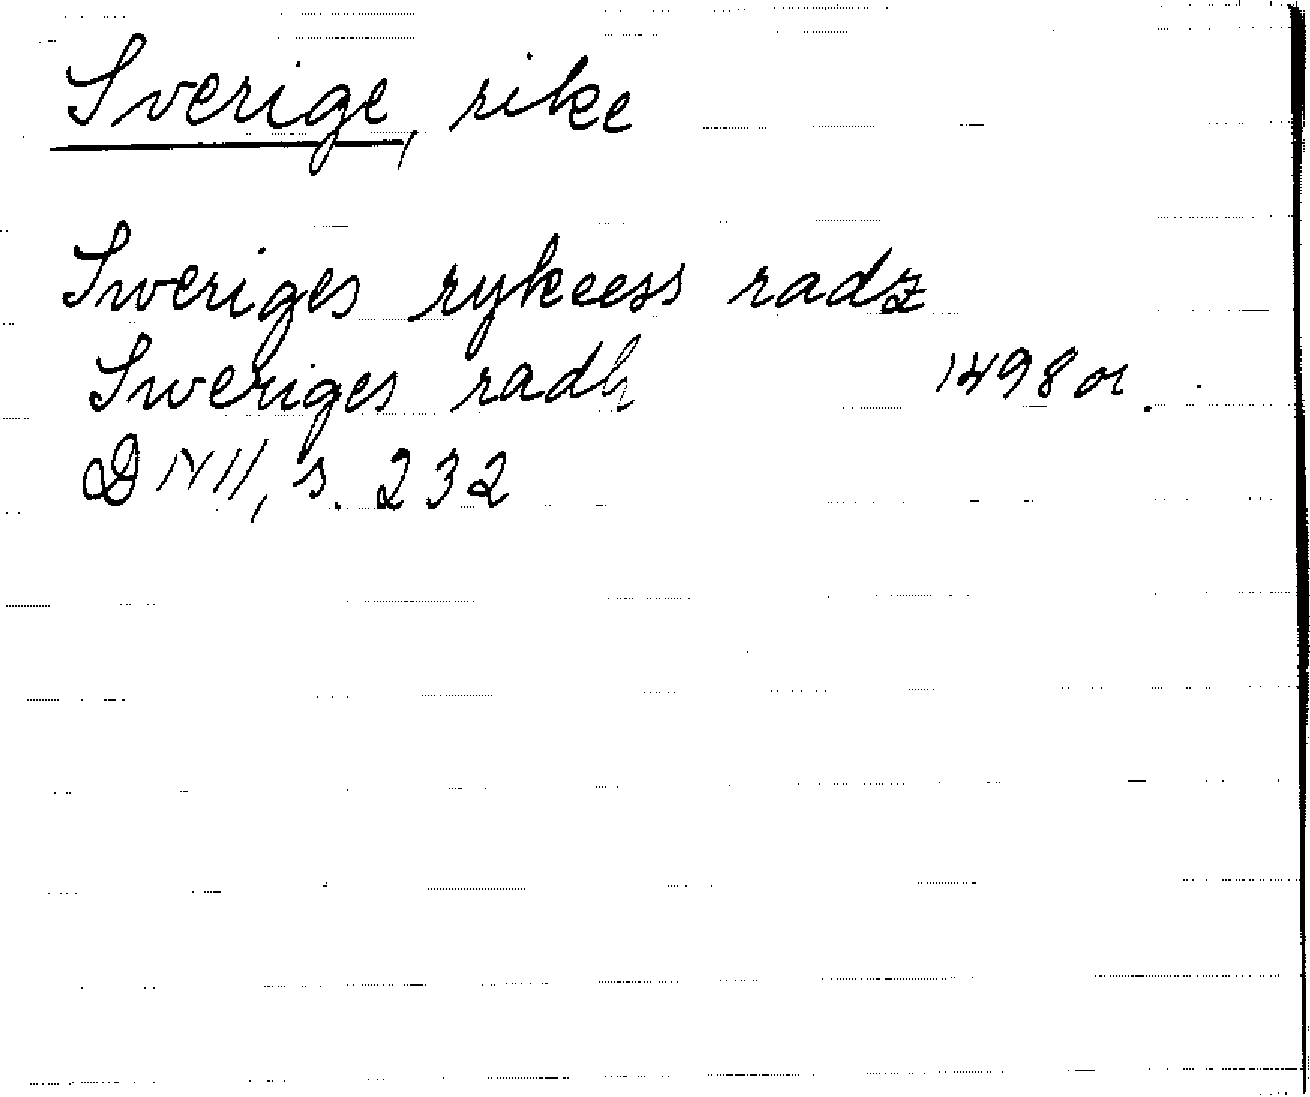 Sverige, rike
Sweriges rykeess radz
Sweriges radh 1498 or.
DN II, s. 232